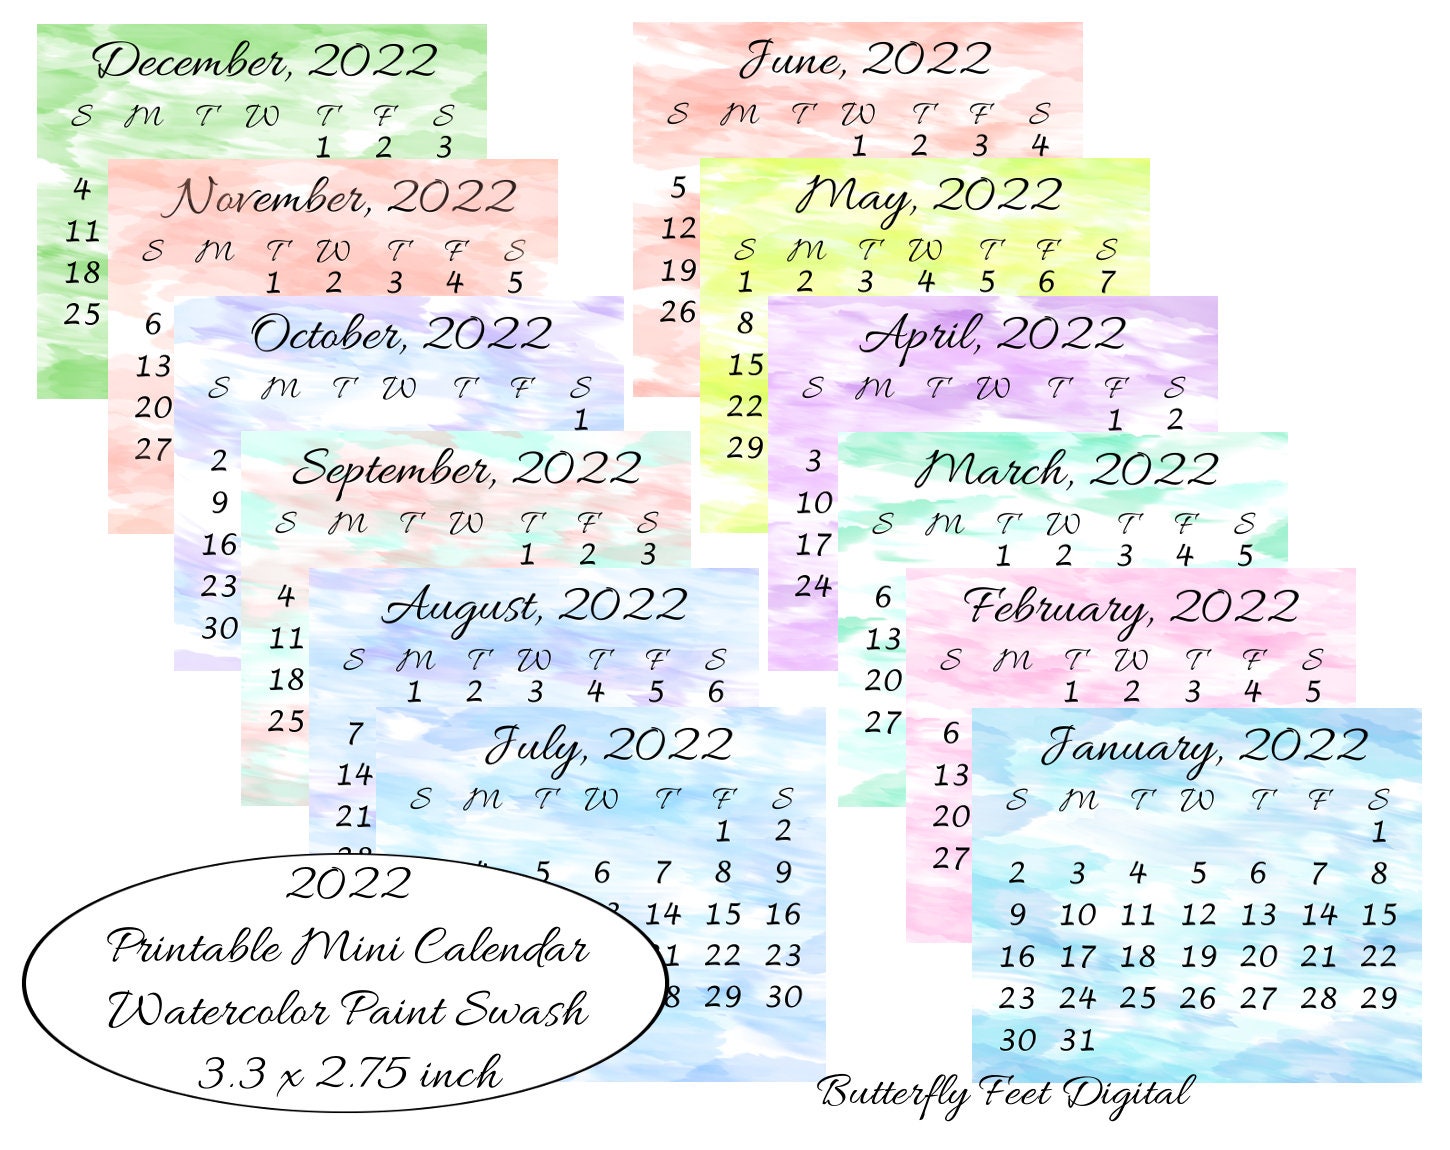 December, 2022
S M T W T F S
1 2 3
4
11
18
25
November, 2022
S M T W T F S
1 2 3 4 5
6
13
20
27
October, 2022
S M T W T F S
1
2
9
16
23
30
September, 2022
S M T W T F S
1 2 3
4
11
18
25
August, 2022
S M T W T F S
1 2 3 4 5 6
7
14
21
July, 2022
S M T W T F S
1 2
5 6 7 8 9
14 15 16
22 23
29 30
June, 2022
S M T W T F S
1 2 3 4
5
12
19
26
May, 2022
S M T W T F S
1 2 3 4 5 6 7
8
15
22
29
April, 2022
S M T W T F S
1 2
3
10
17
24
March, 2022
S M T W T F S
1 2 3 4 5
6
13
20
27
February, 2022
S M T W T F S
1 2 3 4 5
6
13
20
27
January, 2022
S M T W T F S
1
2 3 4 5 6 7 8
9 10 11 12 13 14 15
16 17 18 19 20 21 22
23 24 25 26 27 28 29
30 31
2022
Printable Mini Calendar
Watercolor Paint Swash
3.3 x 2.75 inch
Butterfly Feet Digital